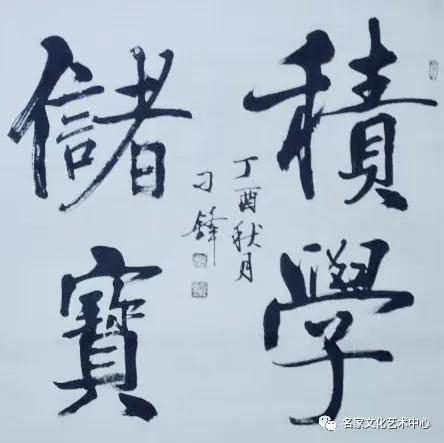 積學
儲寶
丁酉秋月
刁鋒
名家文化艺术中心